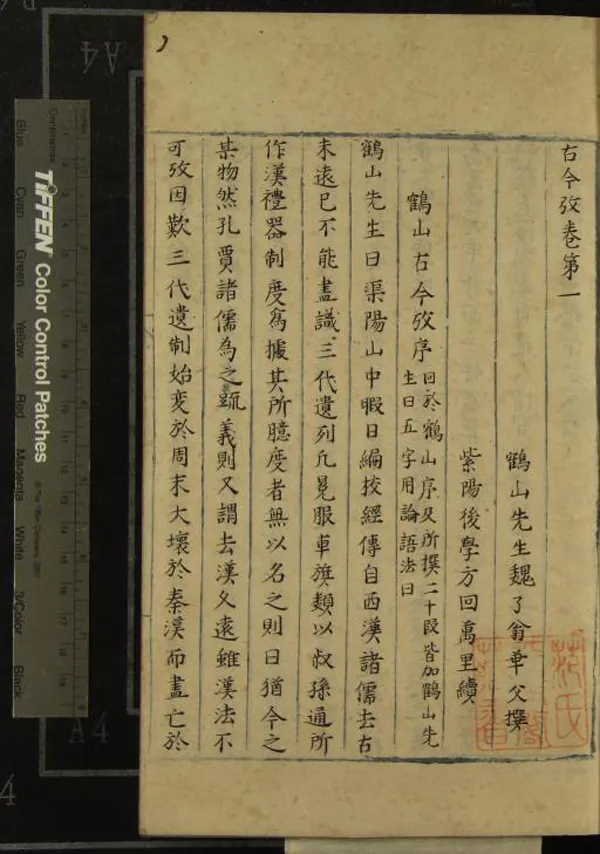 古今攷卷第一
鶴山先生魏了翁華父撰
紫陽後學方回萬里續
鶴山古今攷序
回於鶴山序及所撰二十段皆加鶴山先
生曰五字用論語法曰
鶴山先生曰渠陽山中暇日編校經傳自西漢諸儒去古
未遠已不能盡識三代遺列凡冕服車旗類以叔孫通所
作漢禮器制度爲據其所臆度者無以名之則曰猶今之
某物然孔賈諸儒為之疏義則又謂去漢久遠雖漢法不
可攷因歎三代遺制始变於周末大壞於秦漢而盡亡於
TIFFEN Color Control Patches
Blue
Cyan
Green
Yellow
Red
Magenta
White
3/Color
Black
Centimetres
A4
A4